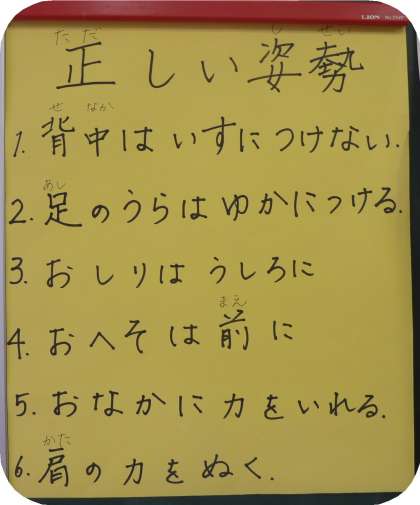 LION
正しい姿勢
ただ し せい
1. 背中はいすにつけない.
せ なか
2. 足のうらはゆかにつける.
あし
3. おしりはうしろに
4. おへそは前に
まえ
5. おなかに力をいれる.
6. 肩の力をぬく.
かた